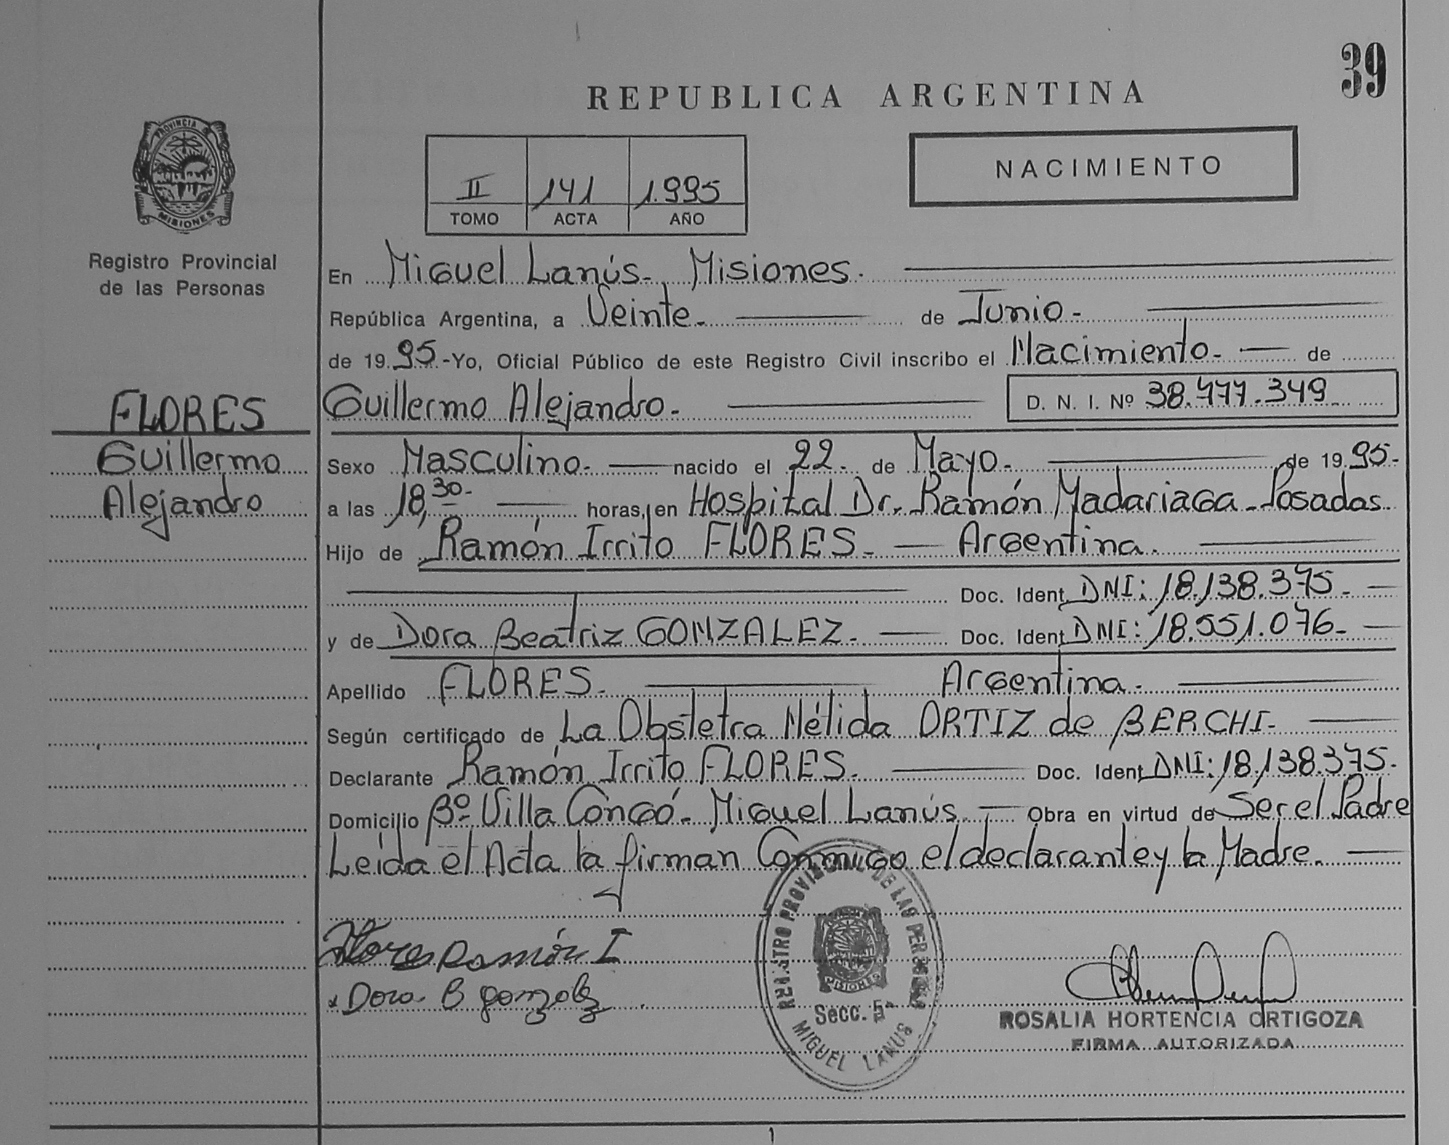 39
REPUBLICA ARGENTINA
PROVINCIA
MISIONES
Registro Provincial
de las Personas
II 141 1.995
TOMO ACTA AÑO
NACIMIENTO
En Miguel Lanús. Misiones.
República Argentina, a Veinte. de Junio.
de 19 95.-Yo, Oficial Público de este Registro Civil inscribo el Nacimiento. de
FLORES
Guillermo
Alejandro
Guillermo Alejandro. D. N. I. Nº 38.777.349
Sexo Masculino. nacido el 22. de Mayo. de 19 95.
a las 18,30. horas, en Hospital Dr. Ramón Madariaga. Posadas
Hijo de Ramón Irrito FLORES. Argentina.
Doc. Ident. DNI: 18.138.375.
y de Dora Beatriz GONZALEZ. Doc. Ident. DNI: 18.551.076.
Apellido FLORES. Argentina.
Según certificado de La Obstetra Nélida ORTIZ de BERCHI.
Declarante Ramón Irrito FLORES. Doc. Ident. DNI: 18.138.375.
Domicilio Bº Villa Longó. Miguel Lanús. Obra en virtud de Ser el Padre
Leida el Acta la firman Conmigo el declarante y la Madre.
Flores Ramón I
Dora B gonzalez
REGISTRO PROVINCIAL DE LAS PERSONAS
MISIONES
Secc. 5ª
MIGUEL LANUS
ROSALIA HORTENCIA ORTIGOZA
FIRMA AUTORIZADA